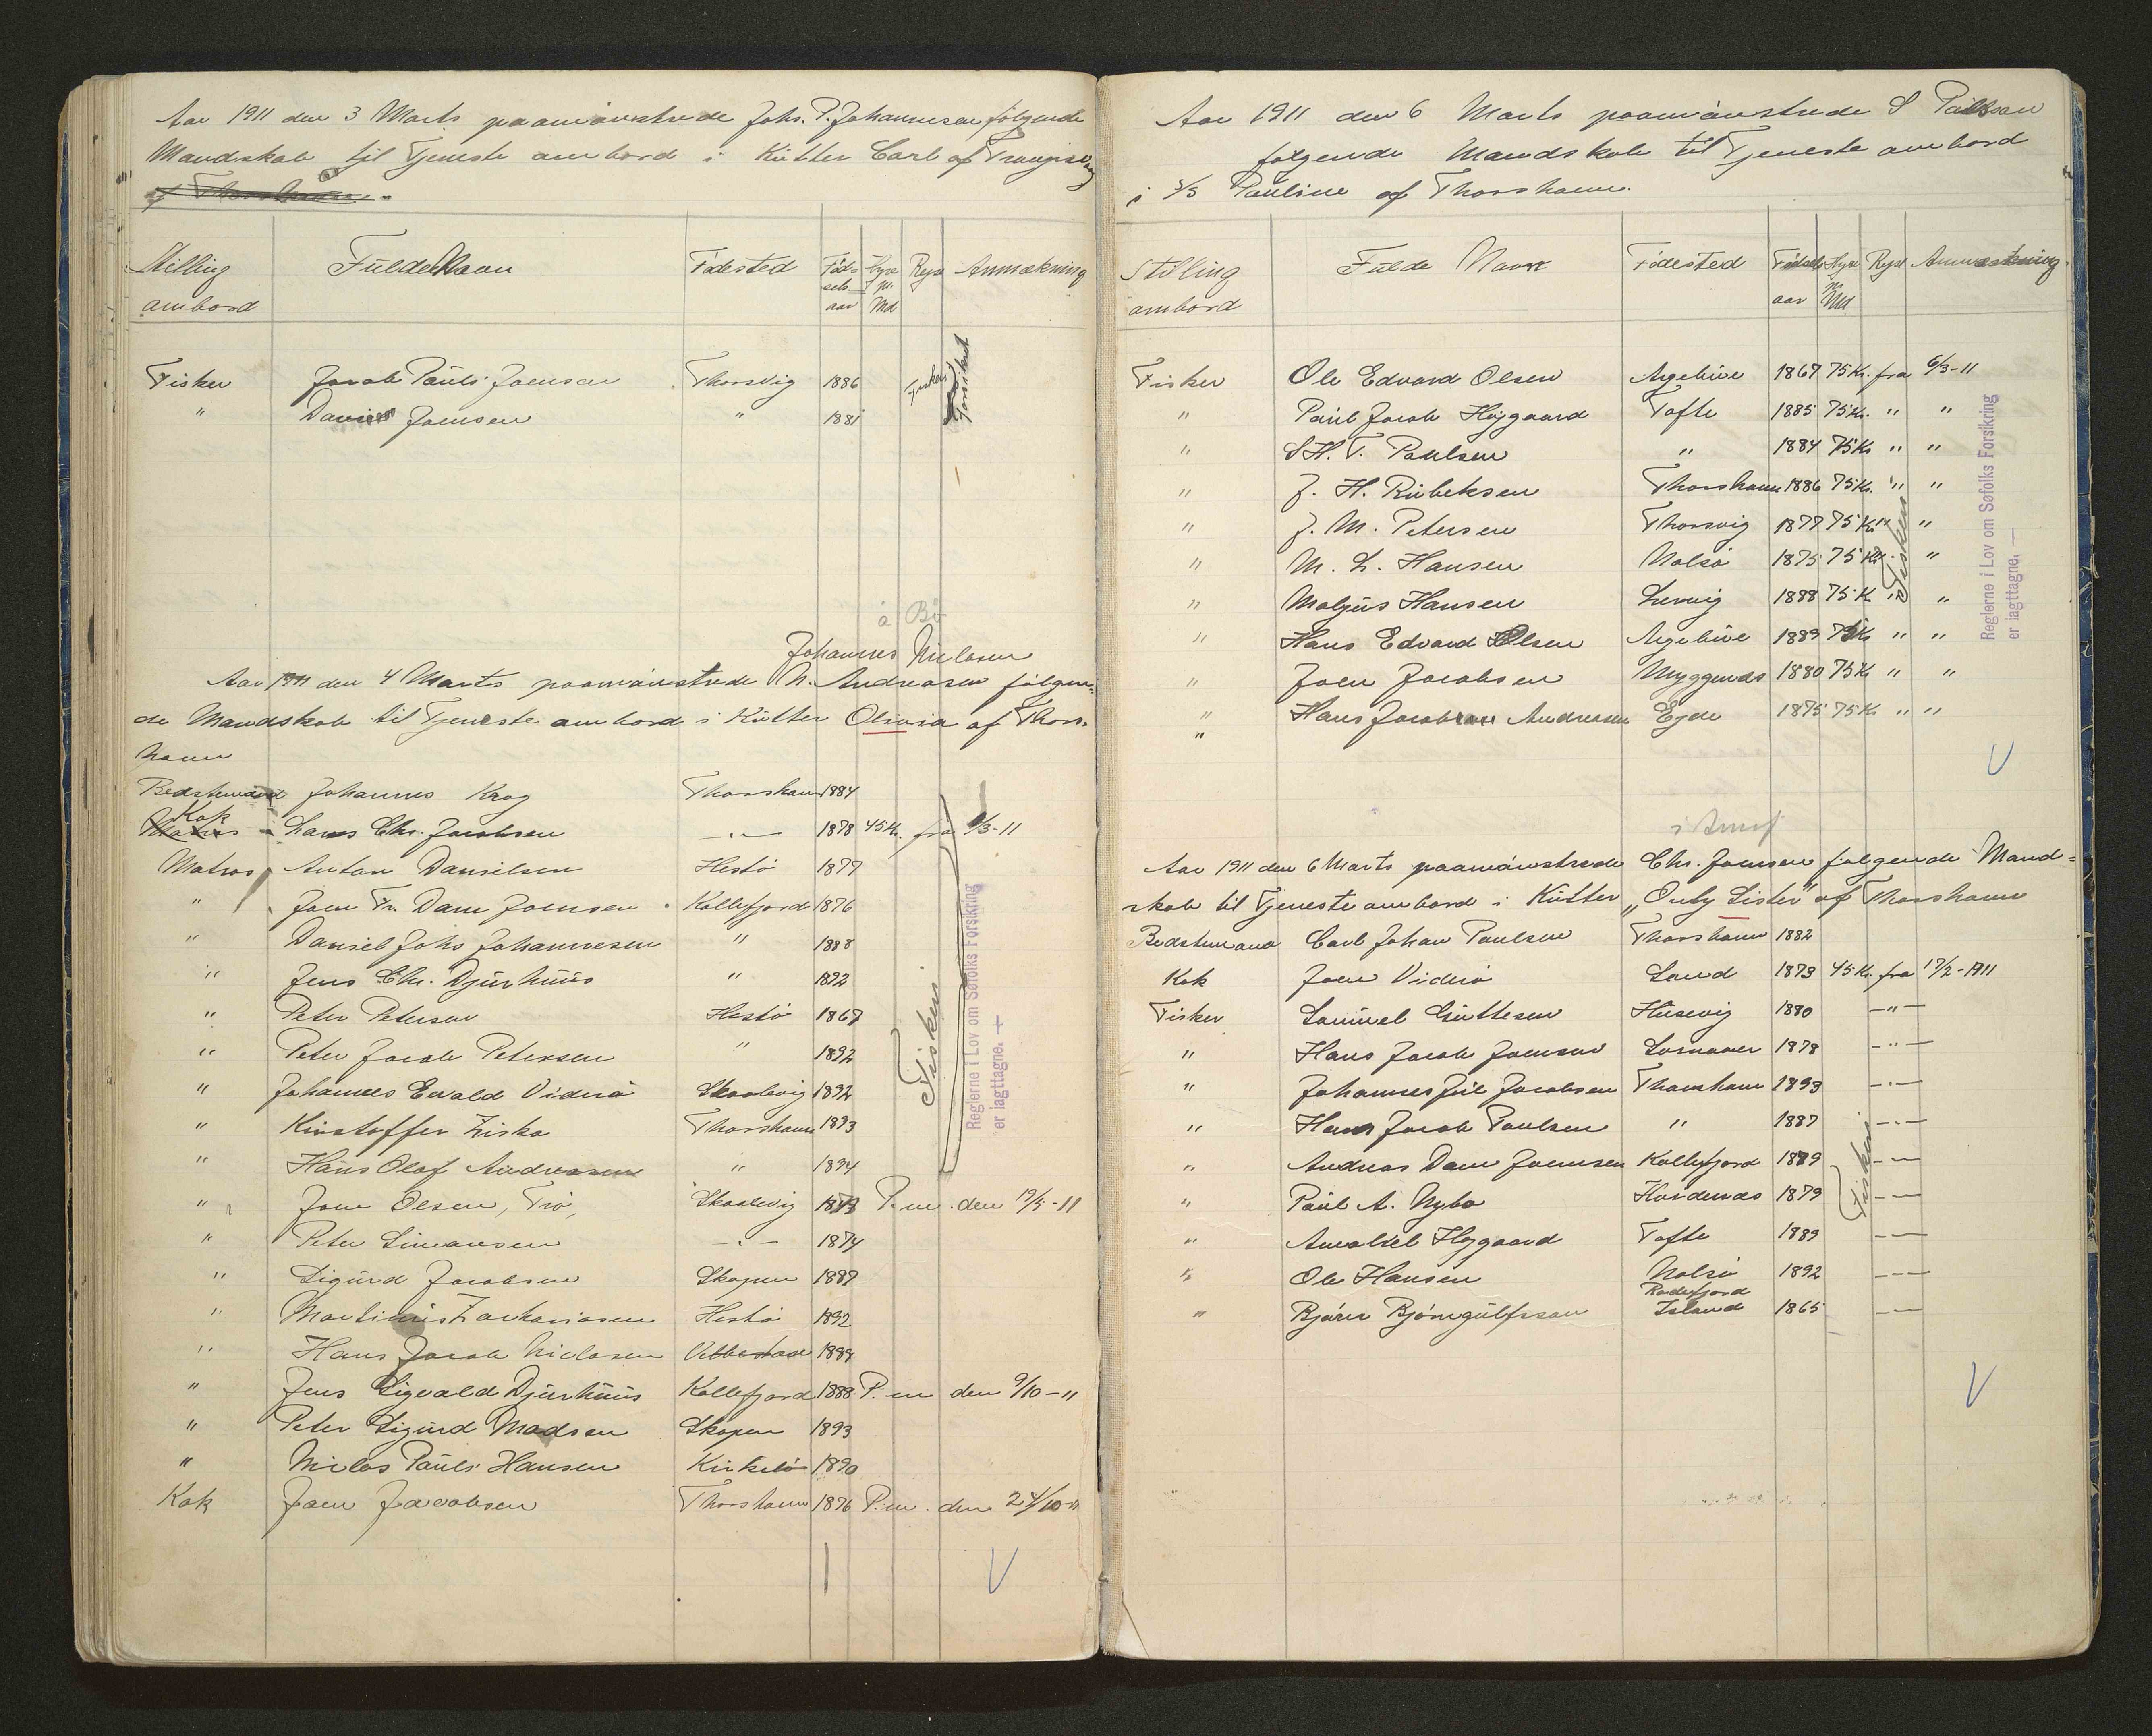 Aar 1911 den 3 Marts paamönstrede Johs. P. Johannesen følgende
Mandskab til Tjeneste ombord i Kütter Carl af Trangisvaag
af Thorshavn.
Stilling ombord Fulde Navn Fødested Fødselsaar Hyre pr. Md Rejse Anmærkning
Fisker Jacob Pauli Joensen Thorsvig 1886 Fiskeri Forsikret
" Daniel Joensen " 1881
å Bø
Johannes Niclasen
Aar 1911 den 4 Marts paamönstrede N. Andreasen følgen-
de Mandskab til Tjeneste ombord i Kütter Olivia af Thors-
havn
Bedstemand Johannes Krog Thorshavn 1884
Kok
Matros Lars Chr. Jacobsen —"— 1878 45 Kr. fra 1/3-11
Matros Anton Danielsen Hestö 1877
" Joen Fr. Dam Joensen Kollefjord 1876
" Daniel Johs Johannesen " 1888
" Jens Chr. Djürhüüs " 1892
" Peter Petersen Hestö 1867
" Peter Jacob Petersen " 1892
" Johannes Evald Viderö Skaalevig 1892
" Kristoffer Ziska Thorshavn 1893
" Hans Olaf Andreasen " 1894
" Joen Olsen, Trö, Skaalevig 1873 P.m. den 19/5-11
" Peter Simonsen —"— 1874
" Sigürd Jacobsen Skopen 1887
" Martinüs Zachariasen Hestö 1892
" Hans Jacob Niclasen Velbestad 1889
" Jens Sigvald Djürhüüs Kollefjord 1888 P.m den 9/10-11
" Peter Sigürd Madsen Skopen 1893
" Niclas Pauli Hansen Kirkebö 1890
Kok Joen Jacobsen Thorshavn 1876 P.m. den 24/10-11
Fiskeri
Reglerne i Lov om Søfolks Forsikring
er iagttagne. —
Aar 1911 den 6 Marts paamönstrede S Paulsen
følgende Mandskab til Tjeneste ombord
i S/S Pauline af Thorshavn.
Stilling ombord Fulde Navn Fødested Fødselsaar Hyre pr. Md Rejse Anmærkning.
Fisker Ole Edvard Olsen Argehüve 1867 75 Kr. fra 6/3-11
" Paül Jacob Højgaard Tofte 1885 75 Kr. " "
" S.H.T. Poulsen " 1884 75 Kr " "
" J. H. Rübeksen Thorshavn 1886 75 Kr. " "
" J. M. Petersen Thorsvig 1877 75 Kr " "
" M. L. Hansen Nolsö 1875 75 Kr. "
" Maljüs Hansen Lervig 1888 75 Kr " "
" Hans Edvard Olsen Argehüve 1889 75 Kr " "
" Joen Jacobsen Myggenæs 1880 75 Kr " "
" Hans Jacob Andreasen Ejde 1875 75 Kr " "
"
Fiskeri
Reglerne i Lov om Søfolks Forsikring
er iagttagne. —
Aar 1911 den 6 Marts paamönstrede Chr. Joensen følgende Mand-
skab til Tjeneste ombord i Kütter "Only Sister" af Thorshavn
Bedstemand Carl Johan Poulsen Thorshavn 1882
Kok Joen Viderö Sand 1873 45 Kr. fra 17/2-1911
Fisker Samüel Güttesen Hüsevig 1880 —"—
" Hans Jacob Joensen 1878 —"—
" Johannes Jül Jacobsen Thorshavn 1893 —"—
" Hans Jacob Poulsen " 1887 —"—
" Andreas Dam Joensen Kollefjord 1889 —"—
" Paül A. Nybo Hvidenæs 1879 —"—
" Højgaard Tofte 1889 —"—
" Ole Hansen Nolsö 1892 —"—
" Björn Björngülfsson Rødefjord Island 1865 —"—
Fiskeri